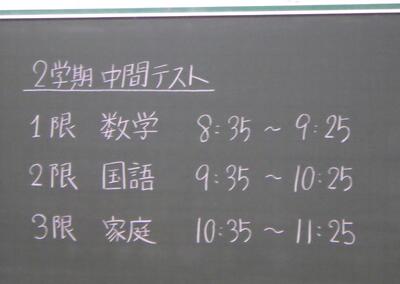 2学期 中間テスト
1限 数学 8:35 ~ 9:25
2限 国語 9:35 ~ 10:25
3限 家庭 10:35 ~ 11:25